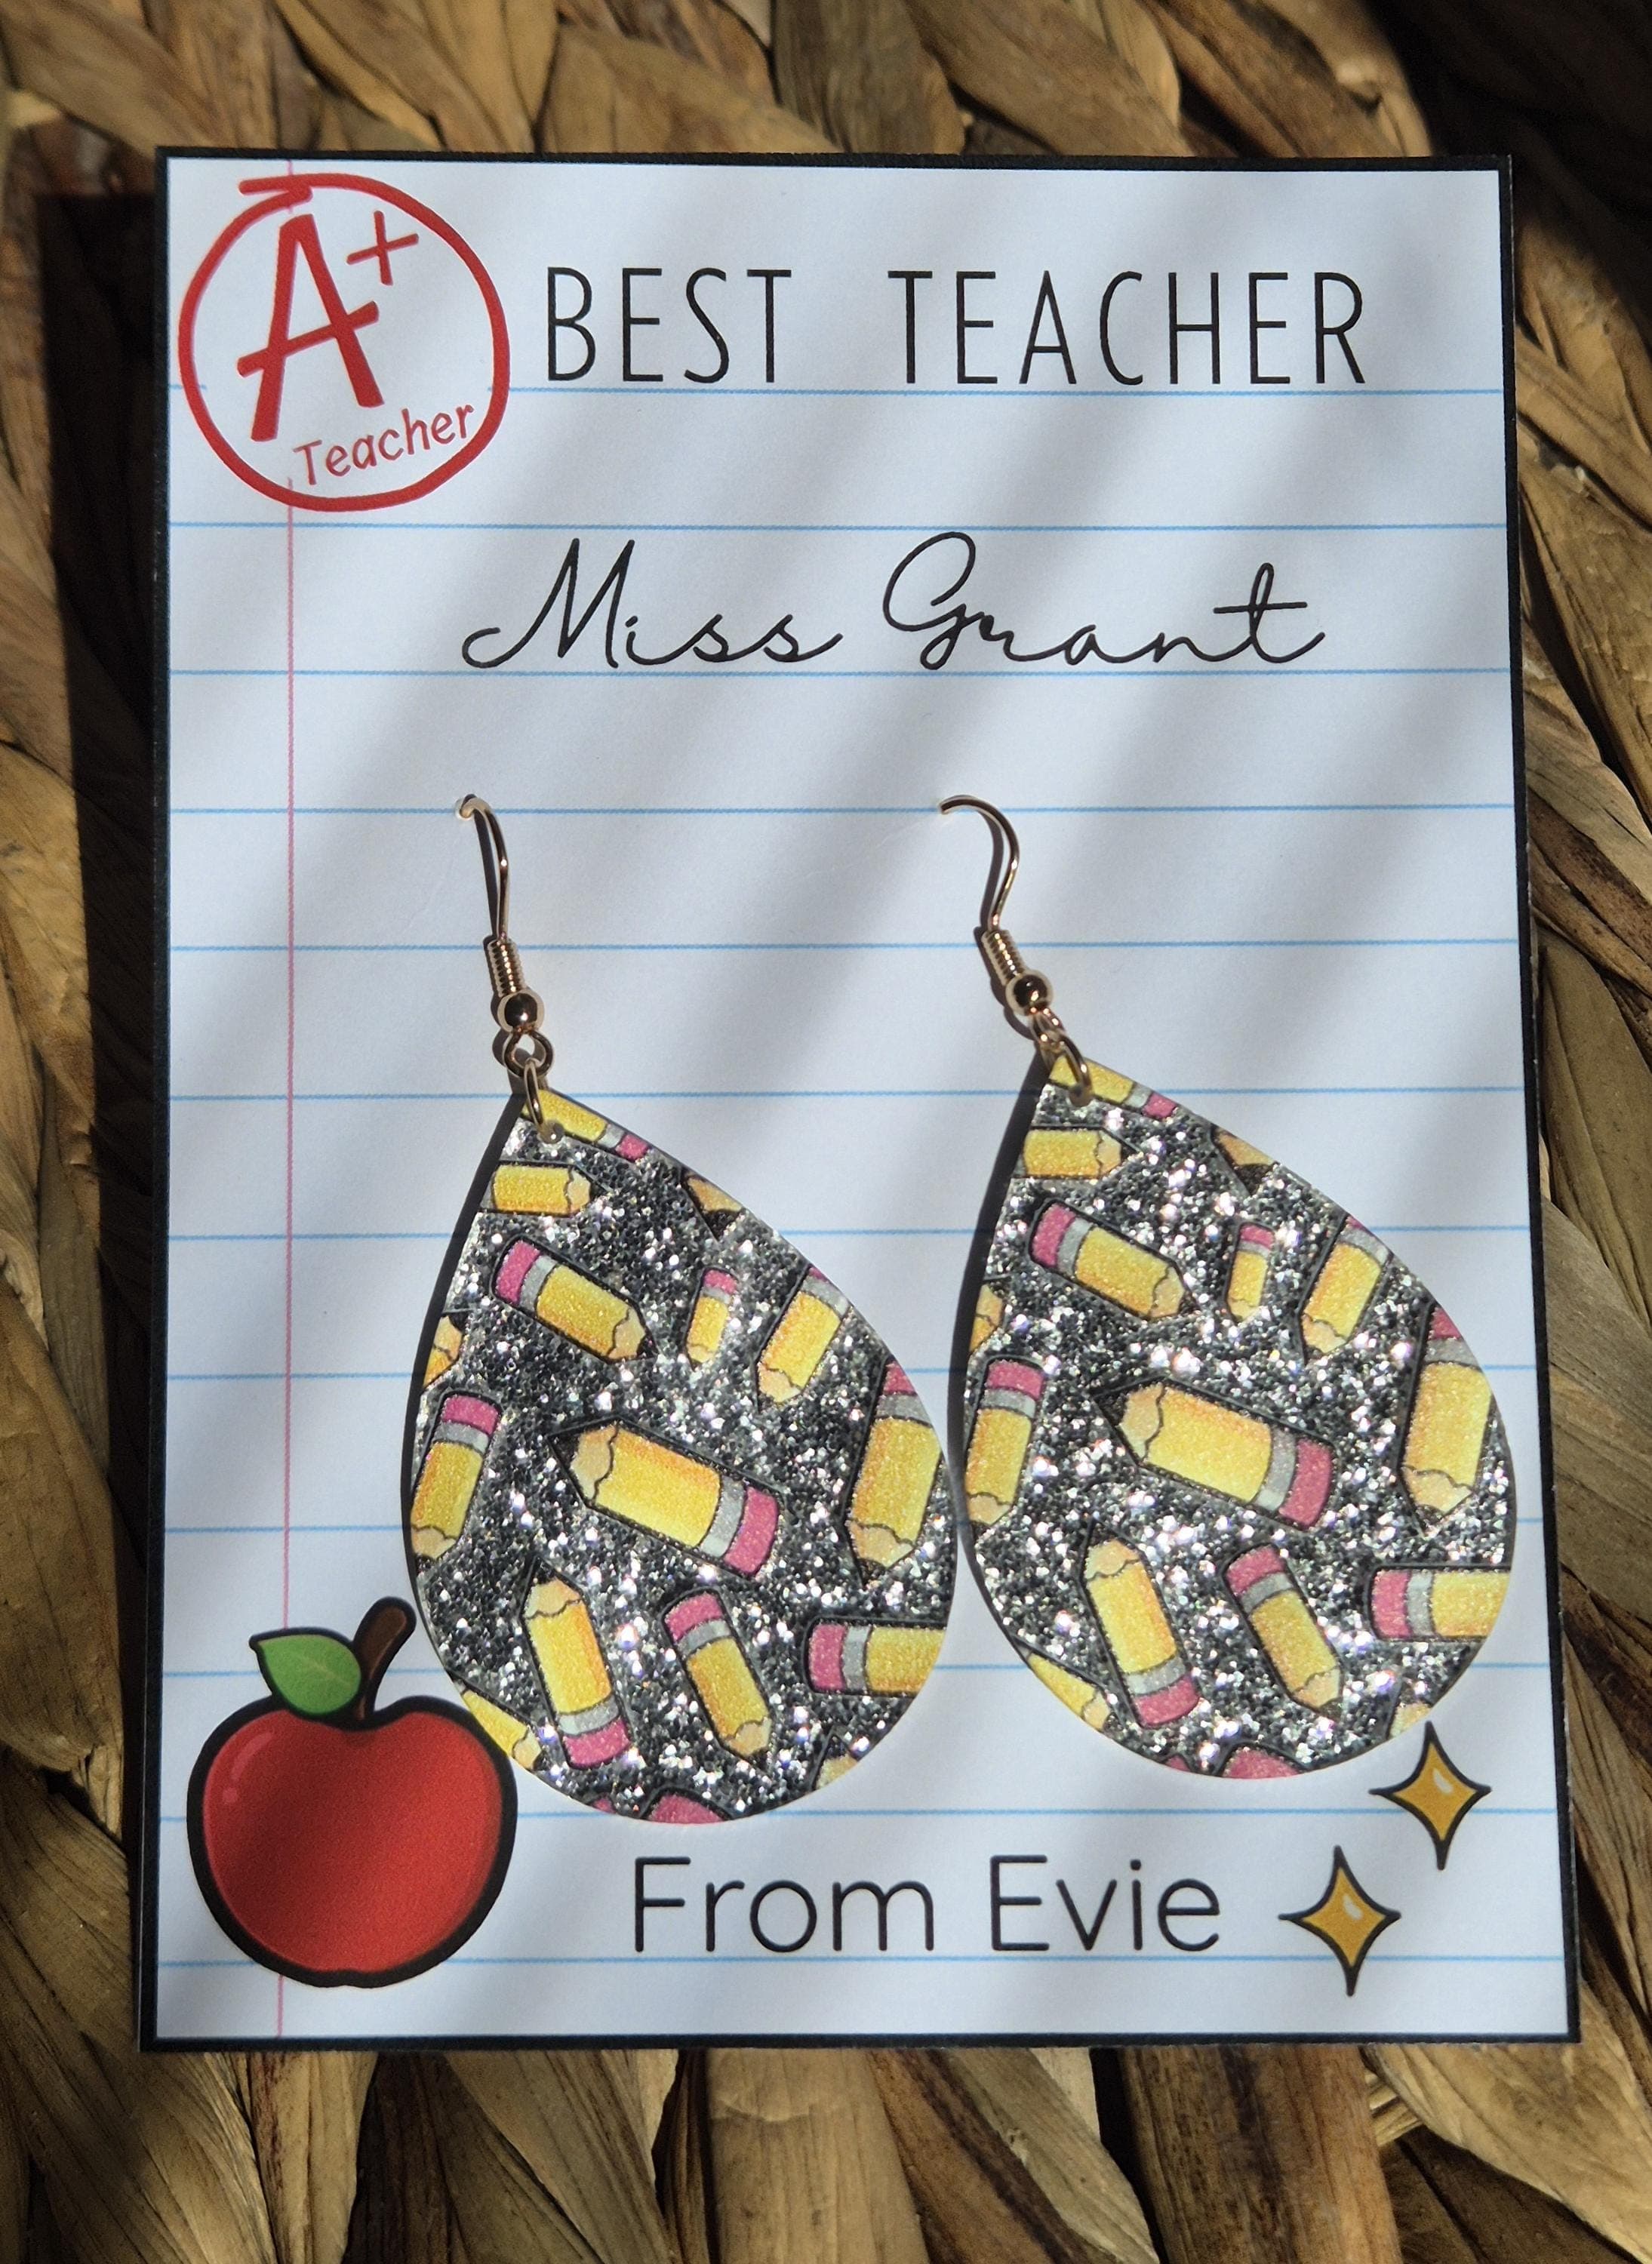 A+
Teacher
BEST TEACHER
Miss Grant
From Evie